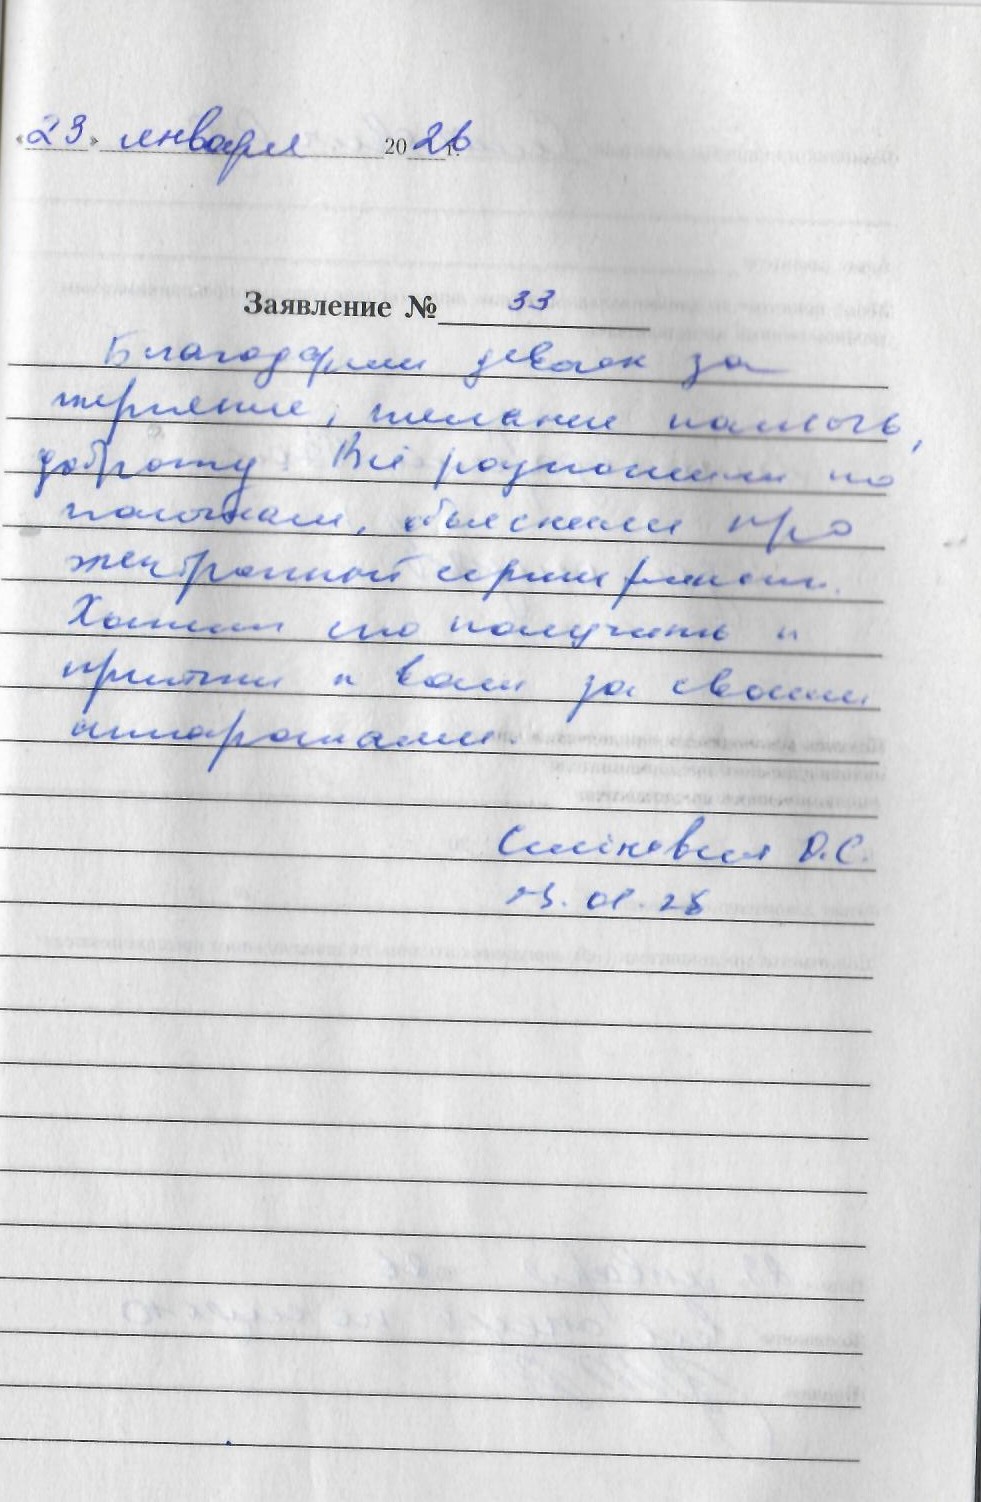 «23» января 2026 г.
Заявление № 33
Благодарим девочек за
терпение, желание помочь,
доброту. Всё разложили по
полочкам, объяснили про
электронный сертификат.
Хотим его получить и
прийти к вам за своими
аппаратами.
О.С.
23.01.26